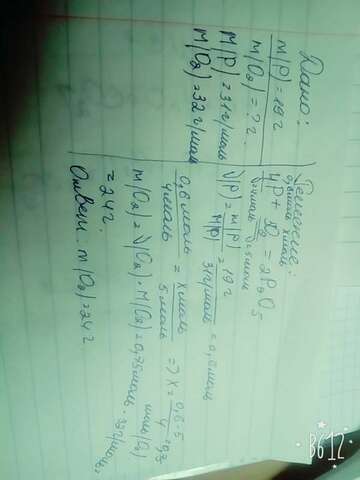 Дано:
m(P)=19г
m(O₂)=?г.
M(P)=31г/моль
M(O₂)=32г/моль
Решение:
0,6моль хмоль
4P + 5O₂ = 2P₂O₅
ν=4моль ν=5моль
ν(P) = m(P) / M(P) = 19г / 31г/моль = 0,6моль
0,6моль / 4моль = хмоль / 5моль => х = 0,6·5 / 4 = 0,75
моль(O₂)
m(O₂)=ν(O₂)·M(O₂)=0,75моль·32г/моль=
=24г.
Ответ: m(O₂)=24г
B612